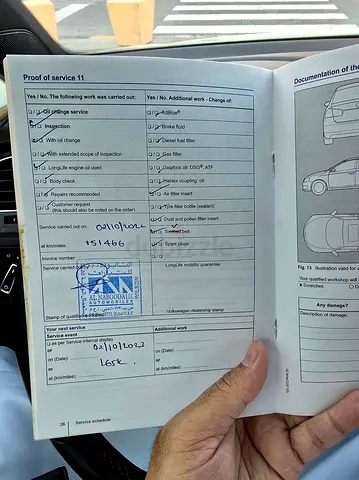 Proof of service 11
Yes / No. The following work was carried out:
Oil change service
Inspection
With oil change
With extended scope of inspection
LongLife engine oil used
Body check
Repairs recommended
Customer request
(this should also be noted on the order)
Service carried out on 02/10/2022
at km/miles: 151466
Invoice number
Service carried out by
AL NABOODAH
AUTOMOBILES
Stamp of qualified
Yes / No. Additional work - Change of:
AdBlue®
Brake fluid
Diesel fuel filter
Gas filter
Gearbox oil: DSG®; ATF
Haldex coupling: oil
Air filter insert
Tyre filler bottle (sealant)
Dust and pollen filter insert
Toothed belt
Spark plugs
LongLife mobility guarantee
Volkswagen dealership stamp
Your next service
Service event
as per Service interval display
or
on (Date) 02/10/2023
or
at (km/miles) 165k.
Additional work
on (Date)
or
at (km/miles)
26 Service schedule
Documentation of the
Fig. 13 Illustration valid for
Your qualified workshop will
Scratches
Any damage?
Description of damage:
dubizzle